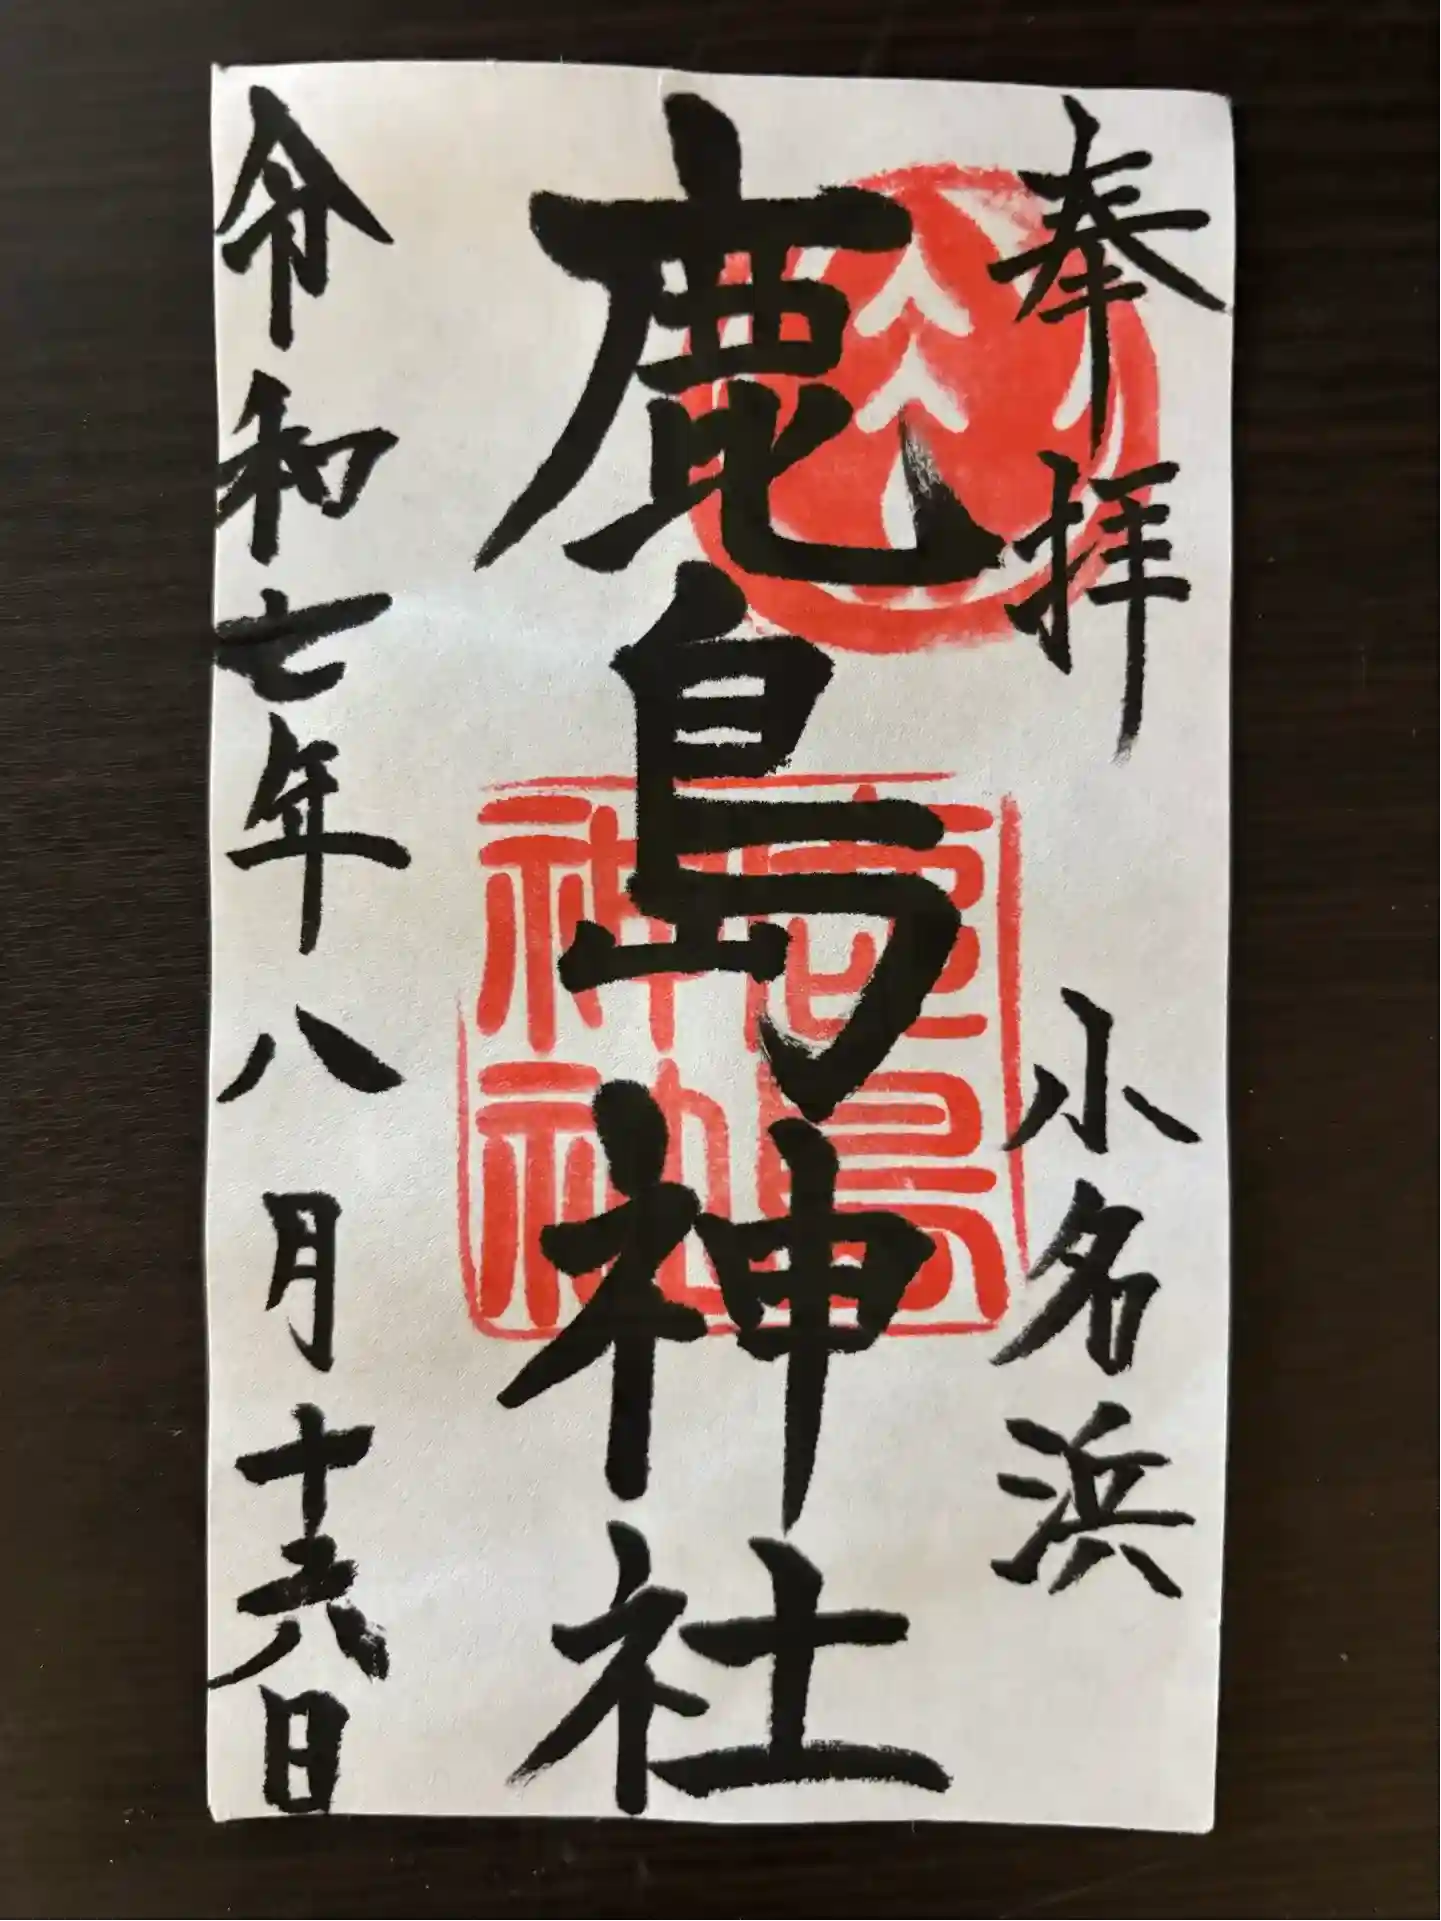 奉拝 小名浜
鹿島神社
令和七年八月十六日
鹿島
神社